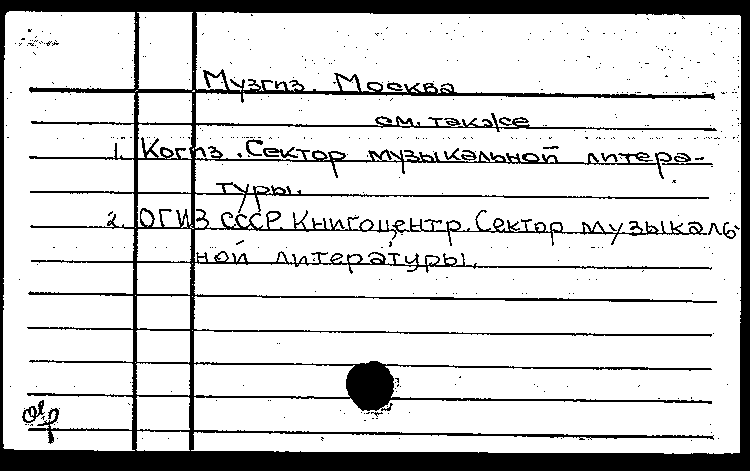 Музгиз. Москва
см. также
1. Когиз. Сектор музыкальной литера-
туры.
2. ОГИЗ СССР. Книгоцентр. Сектор музыкаль-
ной литературы.